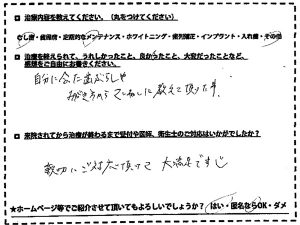 ■ 治療内容を教えてください。（丸をつけてください）
むし歯・歯周病・定期的なメンテナンス・ホワイトニング・歯列矯正・インプラント・入れ歯・その他
■ 治療を終えられて、うれしかったこと、良かったこと、大変だったことなど、
感想をご自由にお書きください。
自分に合った歯ブラシや
磨き方からていねいに教えて頂けた事。
■ 来院されてから治療が終わるまで受付や医師、衛生士のご対応はいかがでしたか？
親切にご対応頂けて 大満足です
★ホームページ等でご紹介させて頂いてもよろしいでしょうか？ はい・匿名ならOK・ダメ